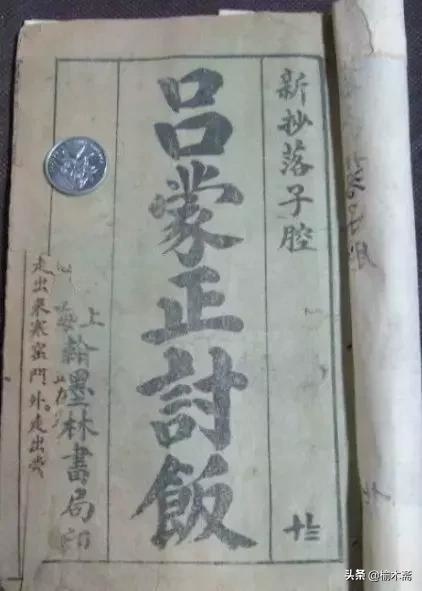 新抄落子腔
十三
吕蒙正討飯
上海翰墨林書局印
走出來寒窰門外。走出
头条 @榆木斋